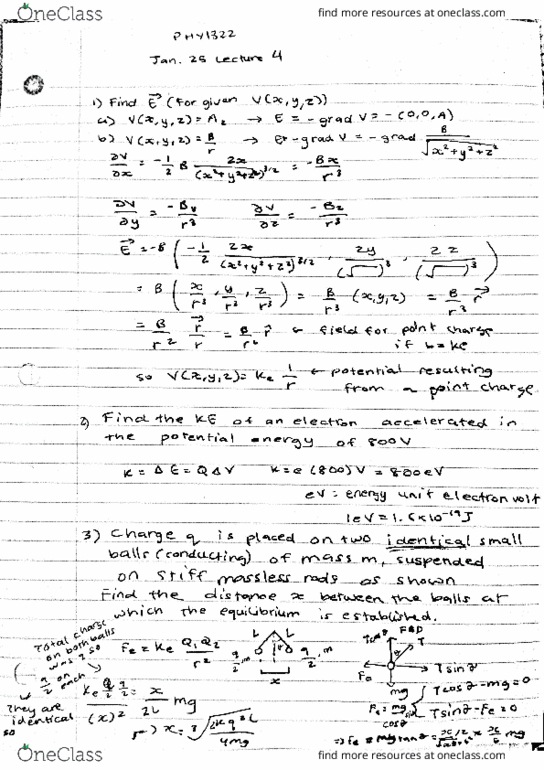 OneClass
find more resources at oneclass.com
PHY1322
Jan. 25 Lecture 4
1) Find E⃗ (for given V(x,y,z))
a) V(x,y,z) = Az → E = -grad V = -(0,0,A)
b) V(x,y,z) = B/r → E = -grad V = -grad B/√(x²+y²+z²)
∂V/∂x = -1/2 B 2x/(x²+y²+z²)^3/2 = -Bx/r³
∂V/∂y = -By/r³ ∂V/∂z = -Bz/r³
E⃗ = -B (-1/2 2x/(x²+y²+z²)^3/2, 2y/(√‾)³, 2z/(√‾)³)
= B (x/r³, y/r³, z/r³) = B/r³ (x,y,z) = B/r³ r⃗
= B/r² r⃗/r = B/r² r̂ ← field for point charge
if b = ke
so V(x,y,z) = ke 1/r ← potential resulting
from a point charge
2) Find the KE of an electron accelerated in
the potential energy of 800V
K = ΔE = QΔV K = e(800)V = 800eV
eV: energy unit electron volt
1eV = 1.6x10⁻¹⁹J
3) Charge q is placed on two identical small
balls (conducting) of mass m, suspended
on stiff massless rods as shown
Find the distance x between the balls at
which the equilibrium is established.
Total charge
on both balls
was q so
q/2 on
each
They are
identical
so
Fe = ke Q₁Q₂/r²
L L
q/2, m q/2, m
x
FBD
T
T sin
Fe
mg
ke q/2 q/2 / (x)² = x/2L mg
→ x = ³√(2kq²L/4mg)
Tcos -mg=0
Tsin -Fe=0
find more resources at oneclass.com
OneClass